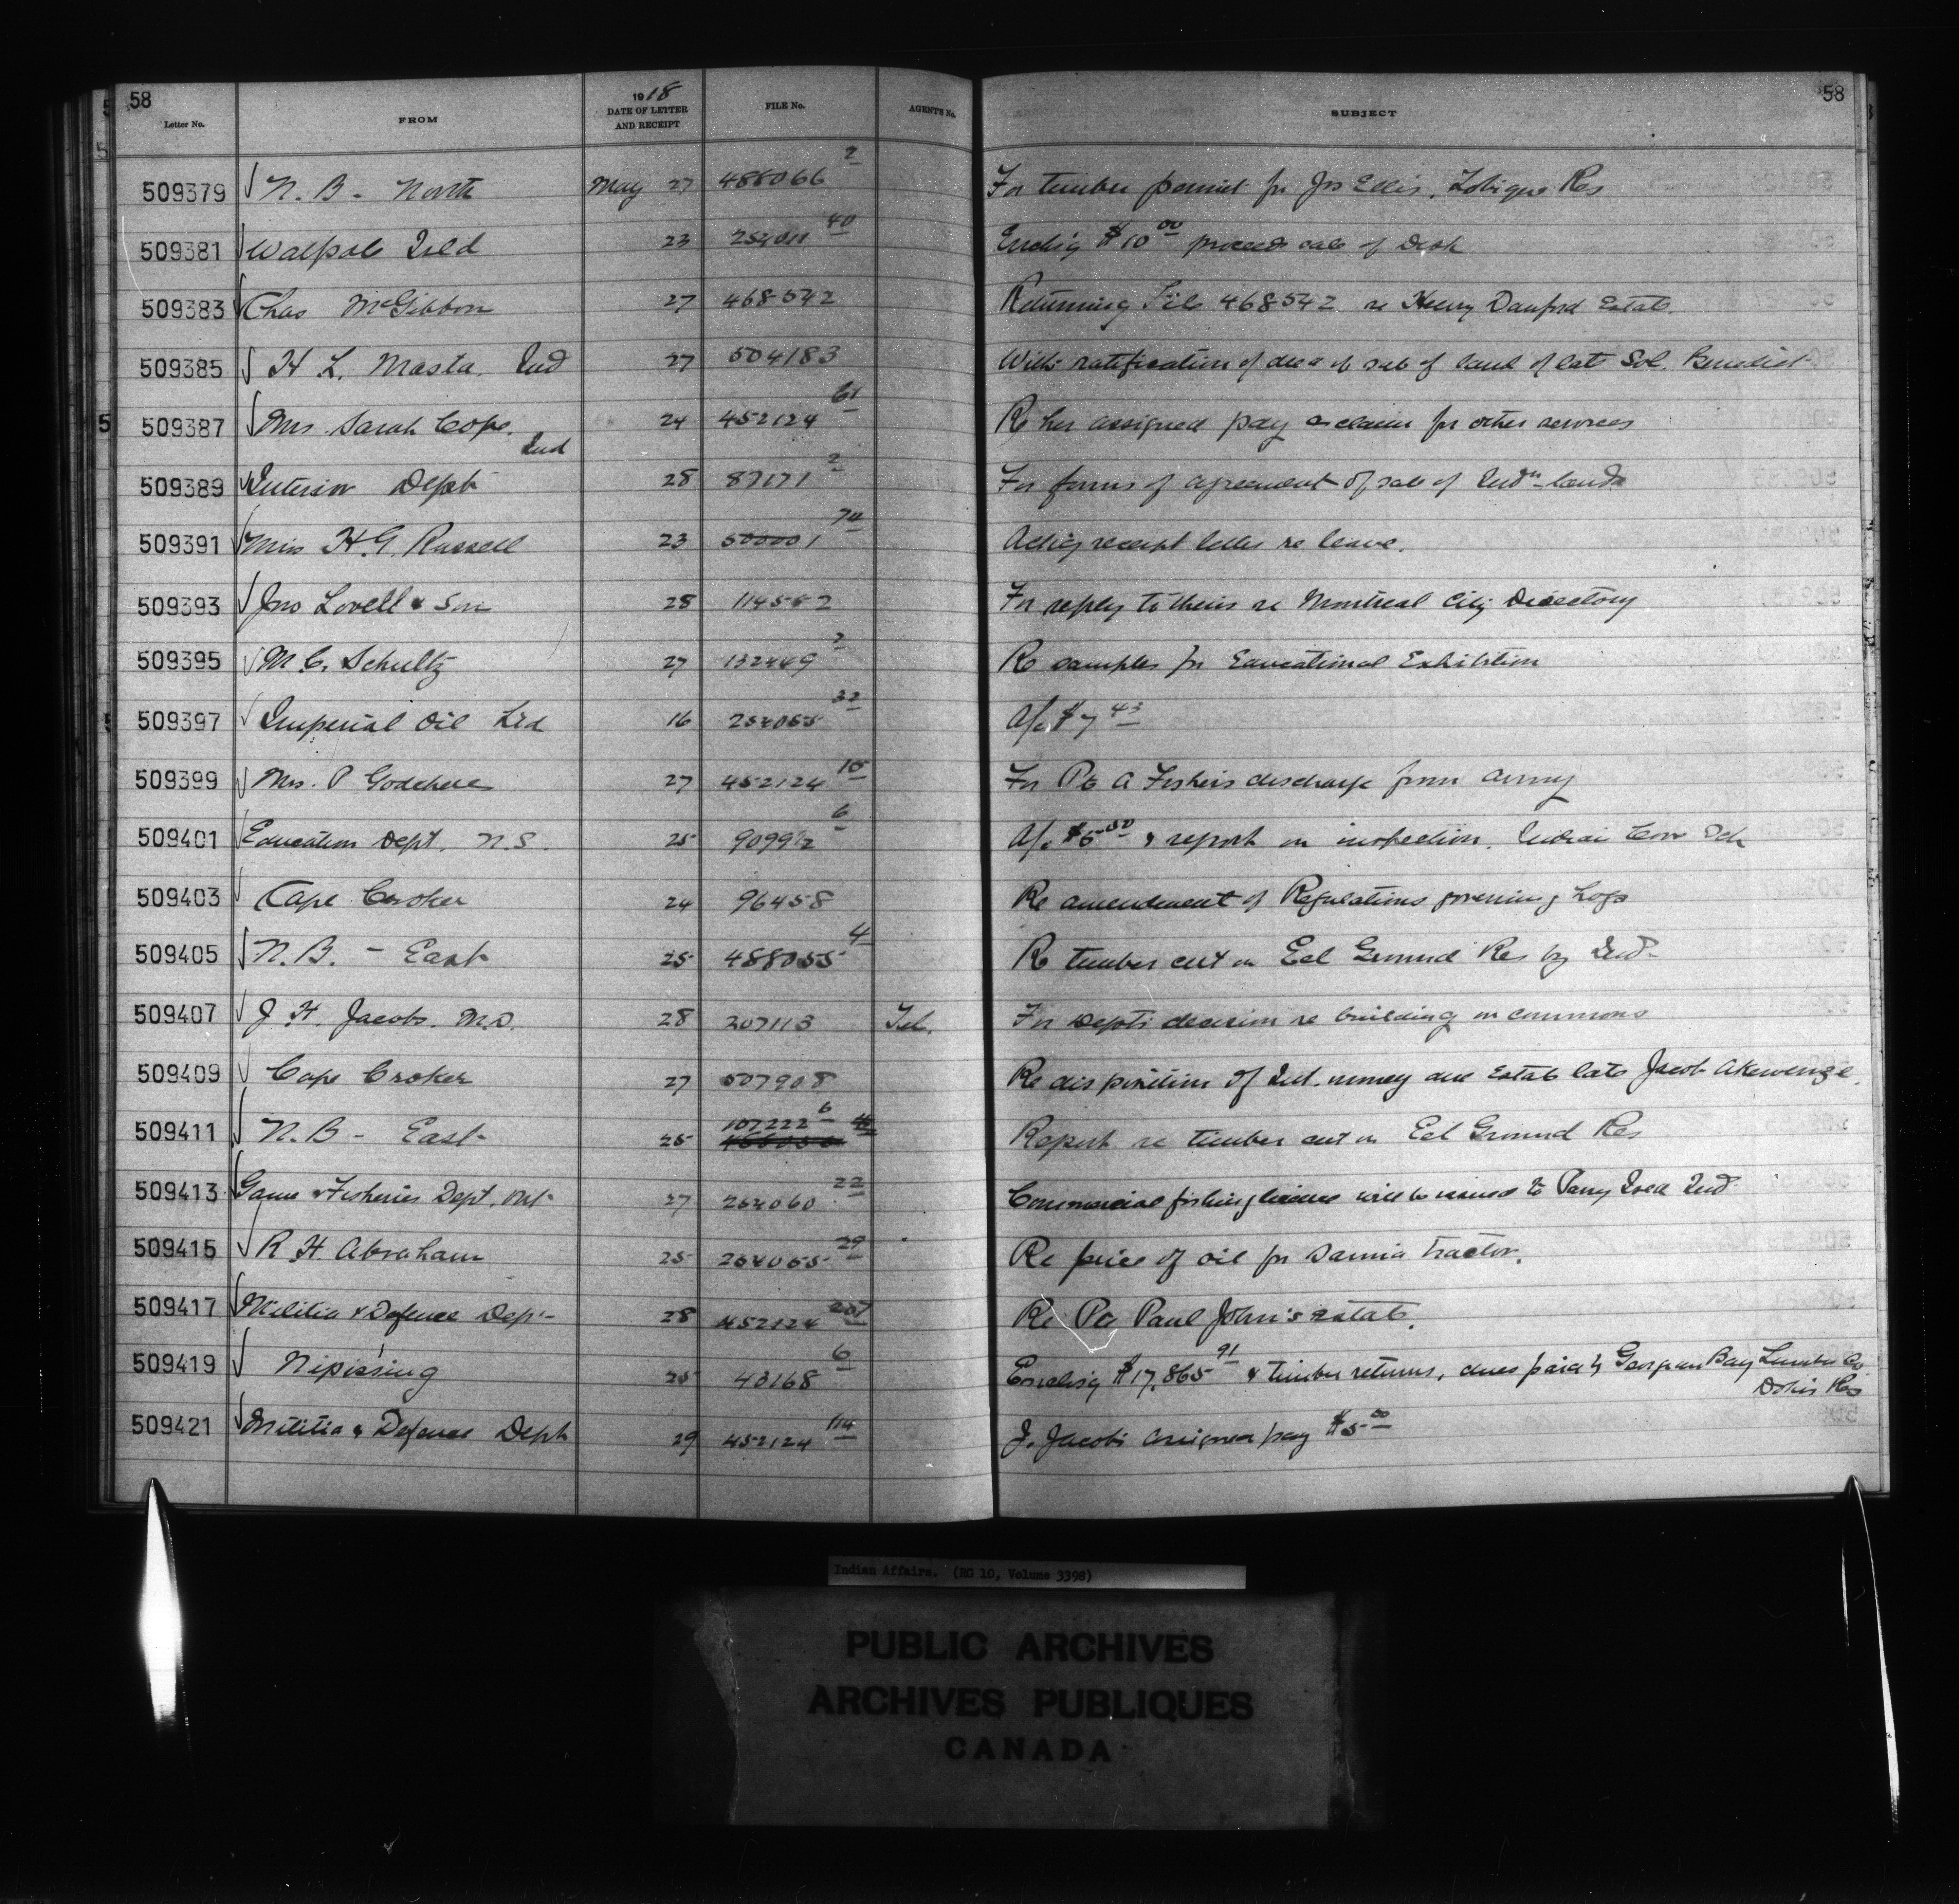 58
58
Letter No. FROM 1918 DATE OF LETTER AND RECEIPT FILE No. AGENT'S No. SUBJECT
509379 N. B - North May 27 488066 2 For timber permit for Jos Ellis, Tobique Res
509381 Walpole Isld 23 254011 40 Enclg $10 00 proceeds sale of Desk
509383 Chas McGibbon 27 468542 Returning File 468542 re Henry Danford Estate.
509385 H L. Masta. Ind 27 504183 With ratification of deed of sale of land of late Sol. Benedict
509387 Mrs Sarah Cope. Ind 24 452124 61 Re her assigned pay & claim for other services
509389 Interior Dept 28 87171 2 For forms of agreement of sale of Indn lands
509391 Miss H. G. Russell 23 50000 1 74 Ackg receipt letter re leave.
509393 Jno Lovell & Son 28 114552 For reply to theirs re Montreal City Directory
509395 M C. Schultz 27 132449 2 Re samples for Educational Exhibition
509397 Imperial Oil Ltd 16 254055 32 A/c $7 43
509399 Mrs. P Godchere 27 452124 10 For Pte A Fishers discharge from army
509401 Education Dept. N.S. 25 6 A/c $5 50 & report on inspection, Indian Cove Sch
509403 Cape Croker 24 96458 Re amendment of Regulations governing Logs
509405 N. B. - East 25 488055 4 Re timber cut on Eel Ground Res by Ind
509407 J. H. Jacobs. M.D. 28 207113 Tel. For Depts decision re building on commons
509409 Cape Croker 27 507908 Re disposition of Int. money due Estate late Jacob Akewenze.
509411 N. B - East 25 107222 6 Report re timber cut on Eel Ground Res
509413 Game & Fisheries Dept. Ont 27 254060 22 Commercial fishing license will be issued to Parry Isld Ind
509415 R H Abraham 25 254055 29 Re price of oil for Sarnia tractor.
509417 Militia & Defence Dept 28 452124 207 Re Pte Paul John's estate.
509419 Nipissing 25 43168 6 Enclosg $17,865 91 & timber returns, dues paid by Georgian Bay Lumber Co
Dokis Res
509421 Militia & Defence Dept 29 452124 114 J. Jacobs assigned pay $5 00
Indian Affairs. (RG 10, Volume 3398)
PUBLIC ARCHIVES
ARCHIVES PUBLIQUES
CANADA